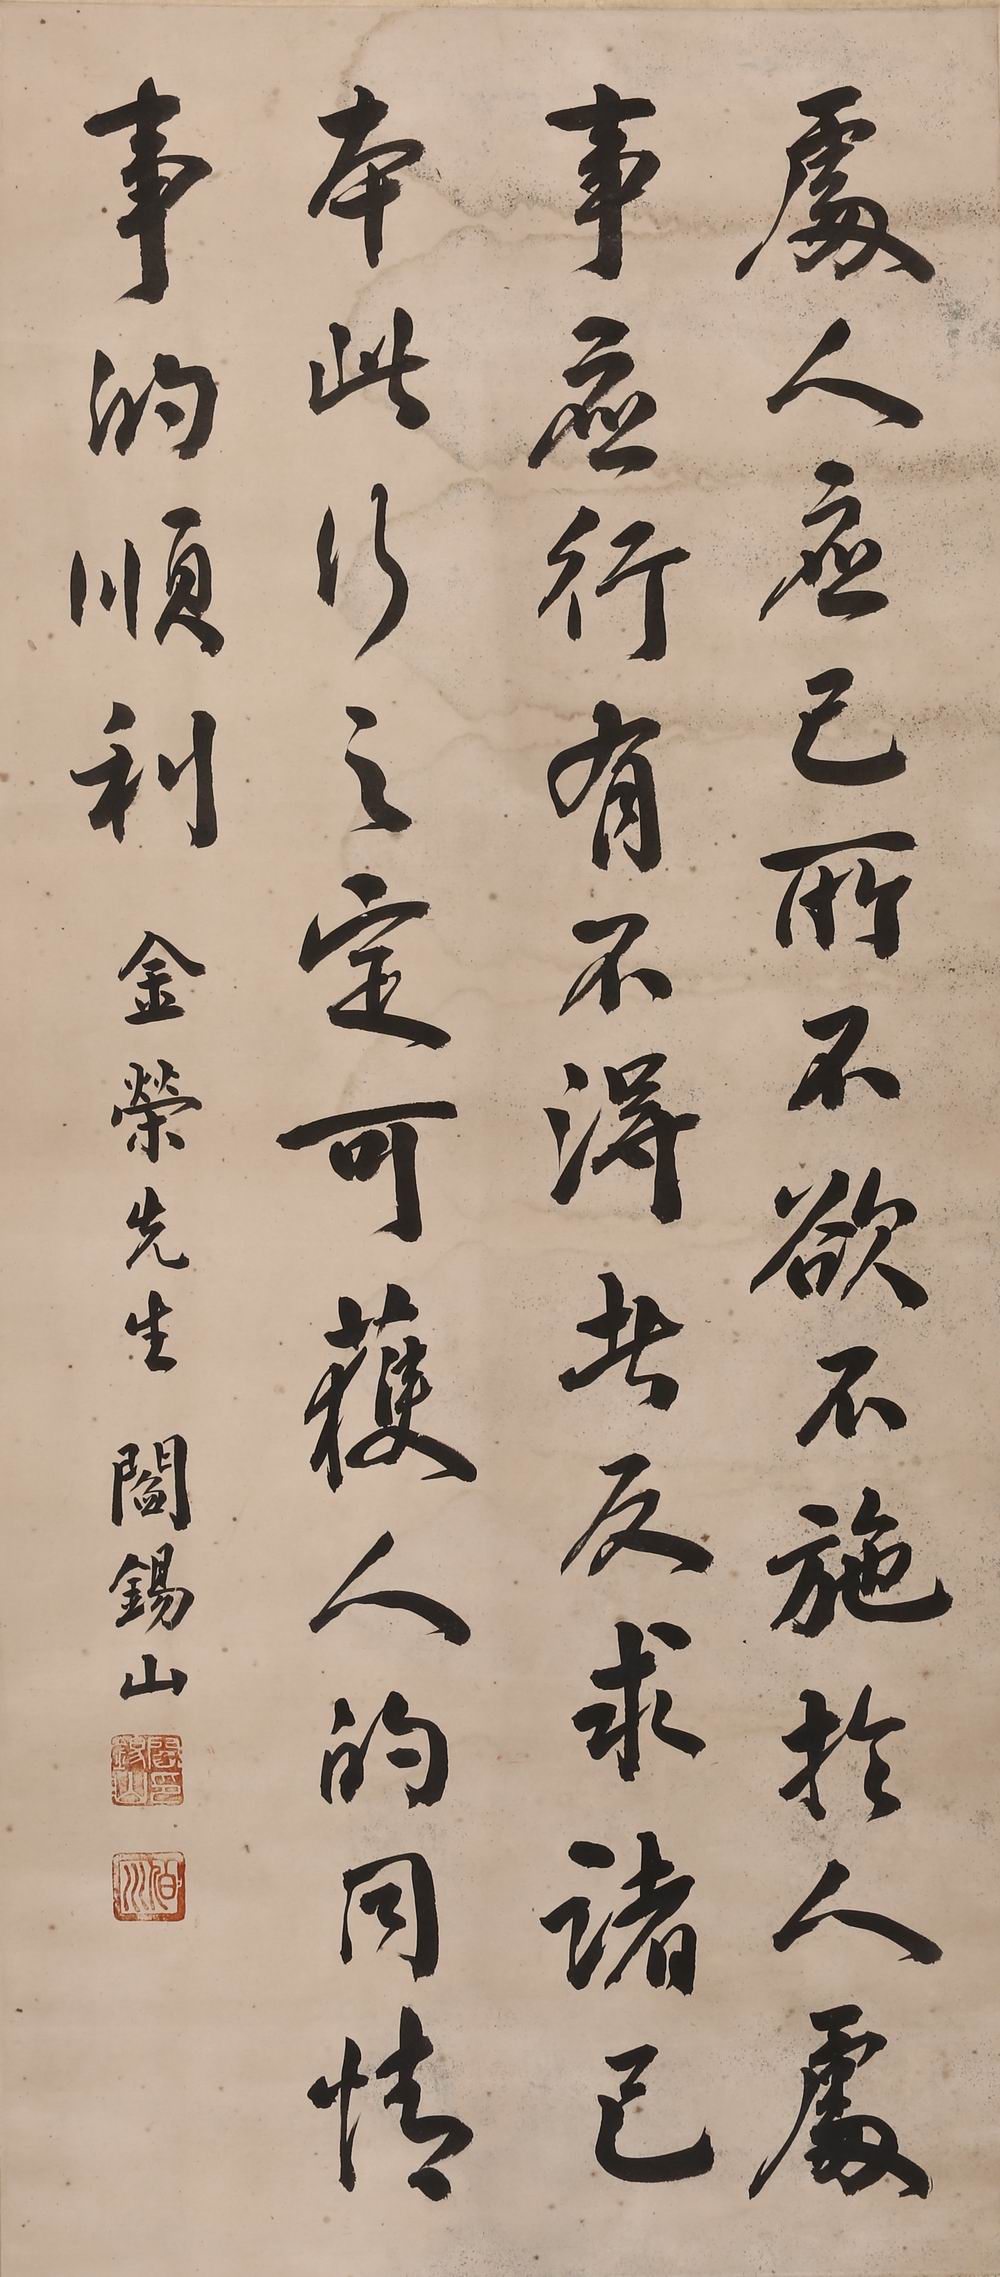 處人應己所不欲不施於人處
事應行有不得者反求諸己
本此行之定可獲人的同情
事的順利 金榮先生 閻錫山
閻錫山印
百川